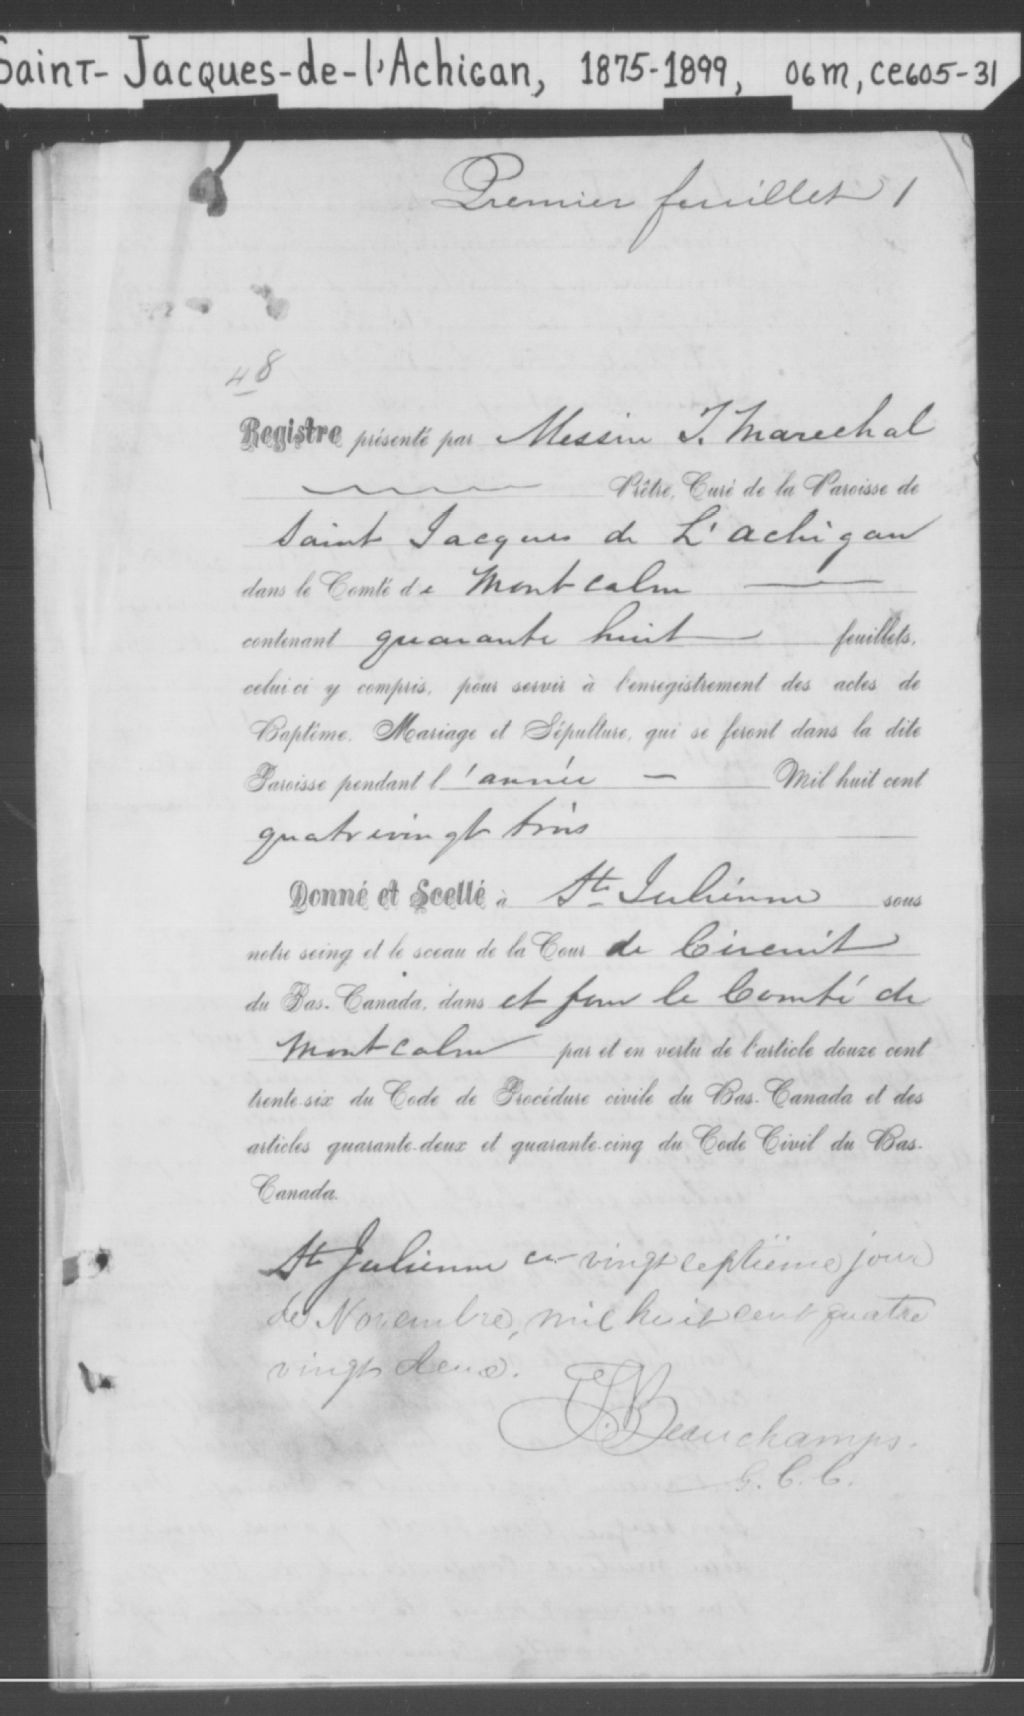 Saint-Jacques-de-l'Achigan, 1875-1899, 06M, CE605-31
Premier feuillet 1
48
Registre présenté par Messire T. Marechal
Prêtre, Curé de la Paroisse de
Saint Jacques de L'achigan
dans le Comté de Montcalm
contenant quarante huit feuillets,
celui ci y compris, pour servir à l'enregistrement des actes de
Baptême, Mariage et Sépulture, qui se feront dans la dite
Paroisse pendant l'année — Mil huit cent
quatrevingt trois
Donné et Scellé à Ste Julienne sous
notre seing et le sceau de la Cour de Circuit
du Bas-Canada, dans et pour le Comté de
Montcalm par et en vertu de l'article douze cent
trente-six du Code de Procédure civile du Bas-Canada et des
articles quarante-deux et quarante-cinq du Code Civil du Bas-
Canada.
Ste Julienne ce vingt septième jour
de Novembre, mil huit cent quatre
vingt deux.
Beauchamps.
G. C. C.